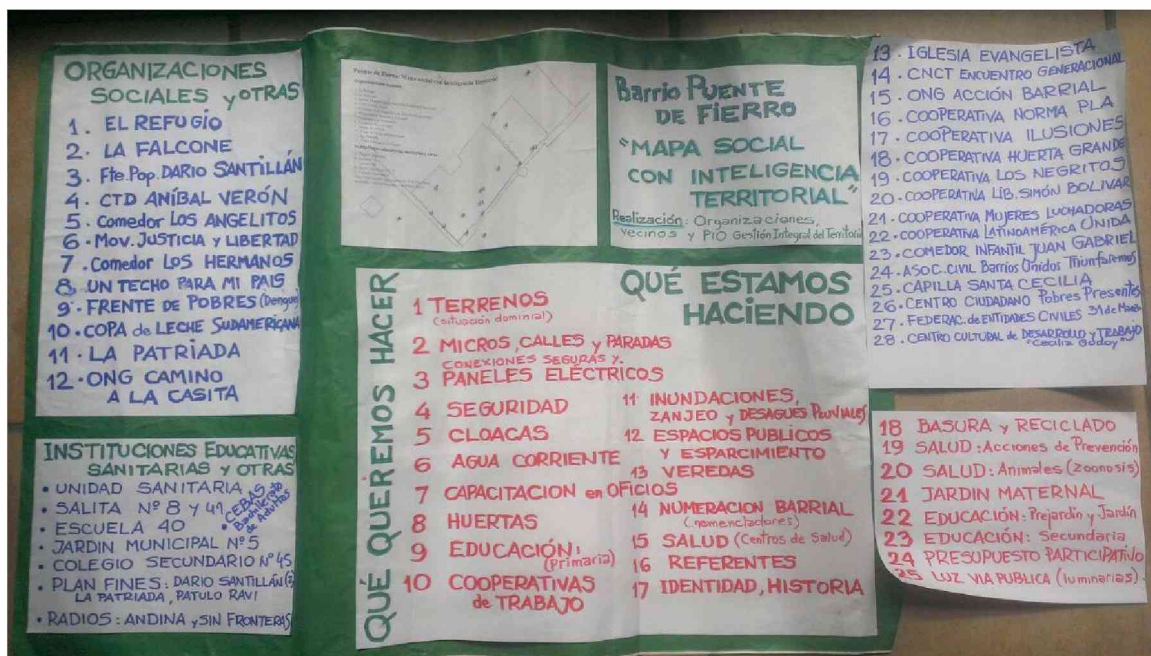 ORGANIZACIONES
SOCIALES y OTRAS
1. EL REFUGIO
2. LA FALCONE
3. Fte. Pop. DARIO SANTILLÁN
4. CTD ANÍBAL VERÓN
5. Comedor LOS ANGELITOS
6. Mov. JUSTICIA y LIBERTAD
7. Comedor LOS HERMANOS
8. UN TECHO PARA MI PAIS
9. FRENTE DE POBRES (Dengue)
10. COPA de LECHE SUDAMERICANA
11. LA PATRIADA
12. ONG CAMINO
A LA CASITA
INSTITUCIONES EDUCATIVAS
SANITARIAS y OTRAS
• UNIDAD SANITARIA
• SALITA Nº 8 y 41
• CEBAS
Bachillerato
de Adultos
• ESCUELA 40
• JARDIN MUNICIPAL Nº5
• COLEGIO SECUNDARIO Nº45
• PLAN FINES: DARIO SANTILLÁN
LA PATRIADA, PATULO RAVI
• RADIOS: ANDINA y SIN FRONTERAS
Puente de Fierro: Mapa social con Inteligencia Territorial
Barrio PUENTE
DE FIERRO
"MAPA SOCIAL
CON INTELIGENCIA
TERRITORIAL"
Realización: Organizaciones,
vecinos y PIO Gestión Integral del Territorio
QUÉ QUEREMOS HACER
QUÉ ESTAMOS
HACIENDO
1 TERRENOS
(situación dominial)
2 MICROS, CALLES y PARADAS
CONEXIONES SEGURAS y.
3 PANELES ELÉCTRICOS
4 SEGURIDAD
5 CLOACAS
6 AGUA CORRIENTE
7 CAPACITACION en OFICIOS
8 HUERTAS
9 EDUCACIÓN:
(Primaria)
10 COOPERATIVAS
de TRABAJO
11 INUNDACIONES,
ZANJEO y DESAGUES PLUVIALES
12 ESPACIOS PUBLICOS
Y ESPARCIMIENTO
13 VEREDAS
14 NUMERACION BARRIAL
(nomencladores)
15 SALUD (Centros de Salud)
16 REFERENTES
17 IDENTIDAD, HISTORIA
13. IGLESIA EVANGELISTA
14. CNCT ENCUENTRO GENERACIONAL
15. ONG ACCIÓN BARRIAL
16. COOPERATIVA NORMA PLA
17. COOPERATIVA ILUSIONES
18. COOPERATIVA HUERTA GRANDE
19. COOPERATIVA LOS NEGRITOS
20. COOPERATIVA LIB. SIMÓN BOLIVAR
21. COOPERATIVA MUJERES LUCHADORAS
22. COOPERATIVA LATINOAMÉRICA UNIDA
23. COMEDOR INFANTIL JUAN GABRIEL
24. ASOC. CIVIL Barrios Unidos Triunfaremos
25. CAPILLA SANTA CECILIA
26. CENTRO CIUDADANO Pobres Presentes
27. FEDERAC. de ENTIDADES CIVILES 31 de
28. CENTRO CULTURAL de DESARROLLO y TRABAJO
"Cecilia Godoy"
18 BASURA y RECICLADO
19 SALUD: Acciones de Prevención
20 SALUD: Animales (zoonosis)
21 JARDIN MATERNAL
22 EDUCACIÓN: Prejardín y Jardín
23 EDUCACIÓN: Secundaria
24 PRESUPUESTO PARTICIPATIVO
25 LUZ VIA PUBLICA (luminarias).